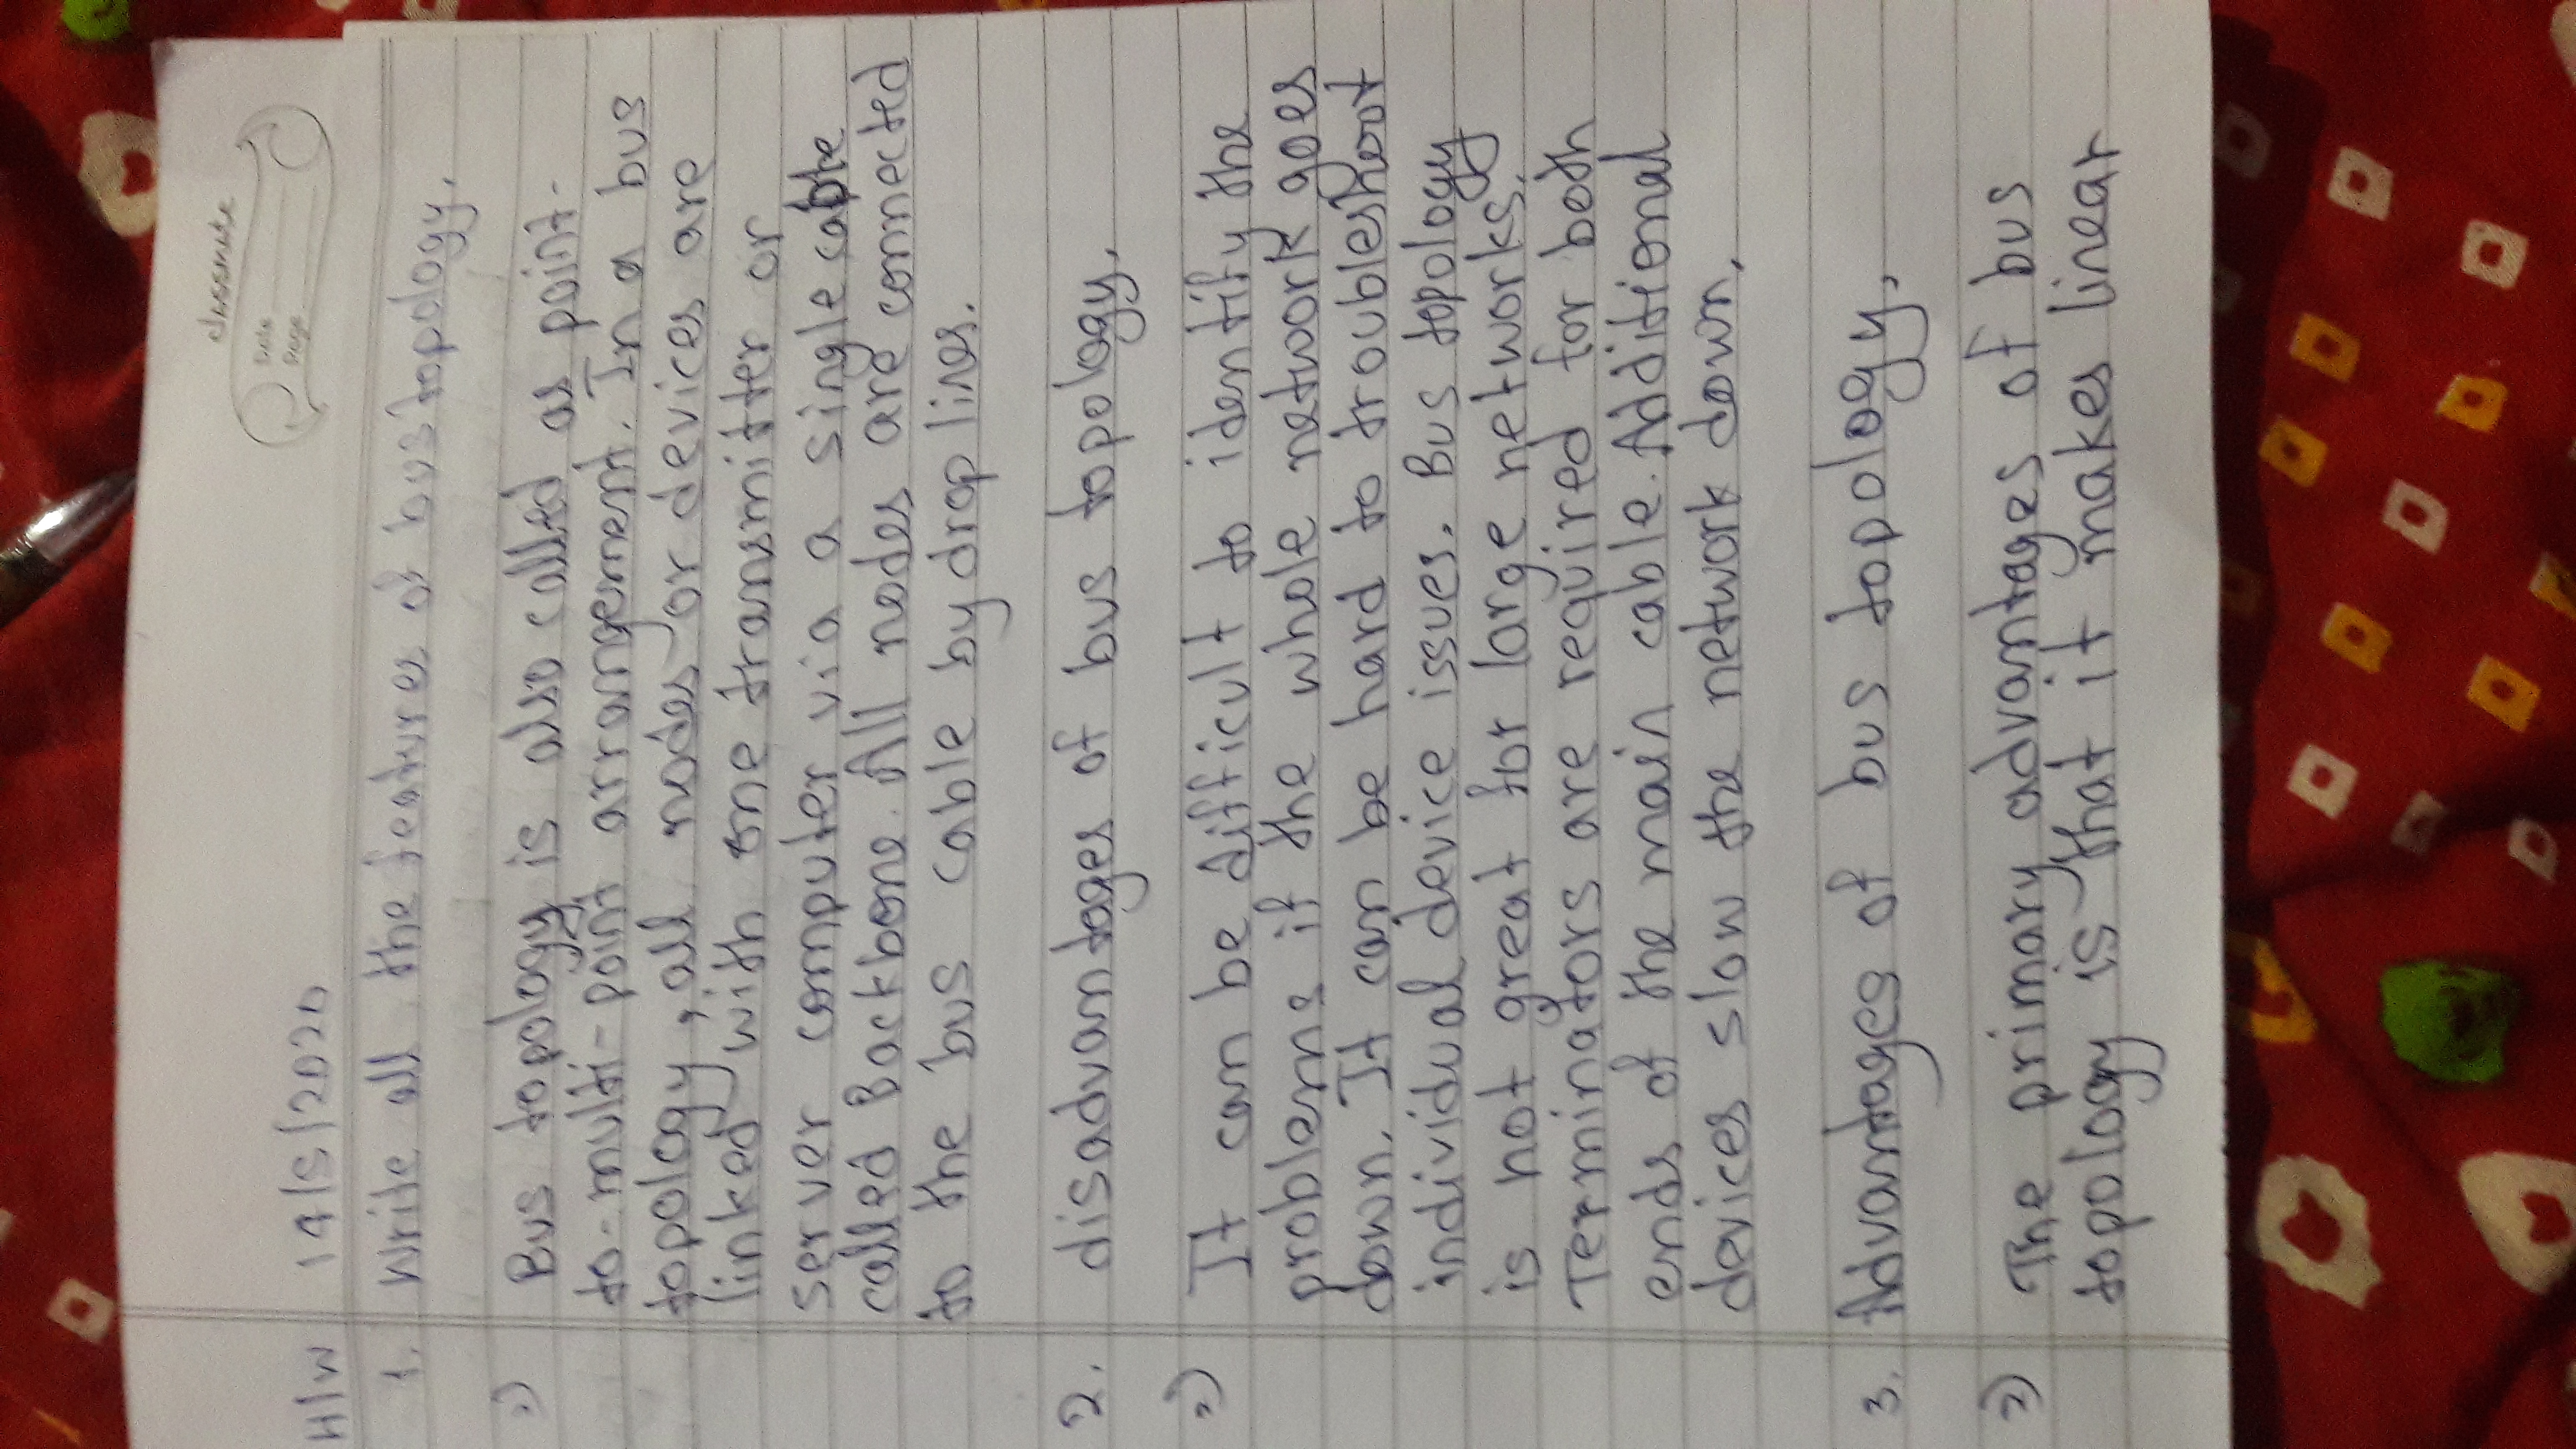 classmate
Date
Page
H/W 14/5/2020
1. Write all the features of bus topology.
Bus topology is also called as point-
to-multi-point arrangement. In a bus
topology, all nodes or devices are
linked with one transmitter or
server computer via a single cable
called Backbone. All nodes are connected
to the bus cable by drop lines.
2. disadvantages of bus topology.
It can be difficult to identify the
problems if the whole network goes
down. It can be hard to troubleshoot
individual device issues. Bus topology
is not great for large networks.
Terminators are required for both
ends of the main cable. Additional
devices slow the network down.
3. Advantages of bus topology.
The primary advantages of bus
topology is that it makes linear